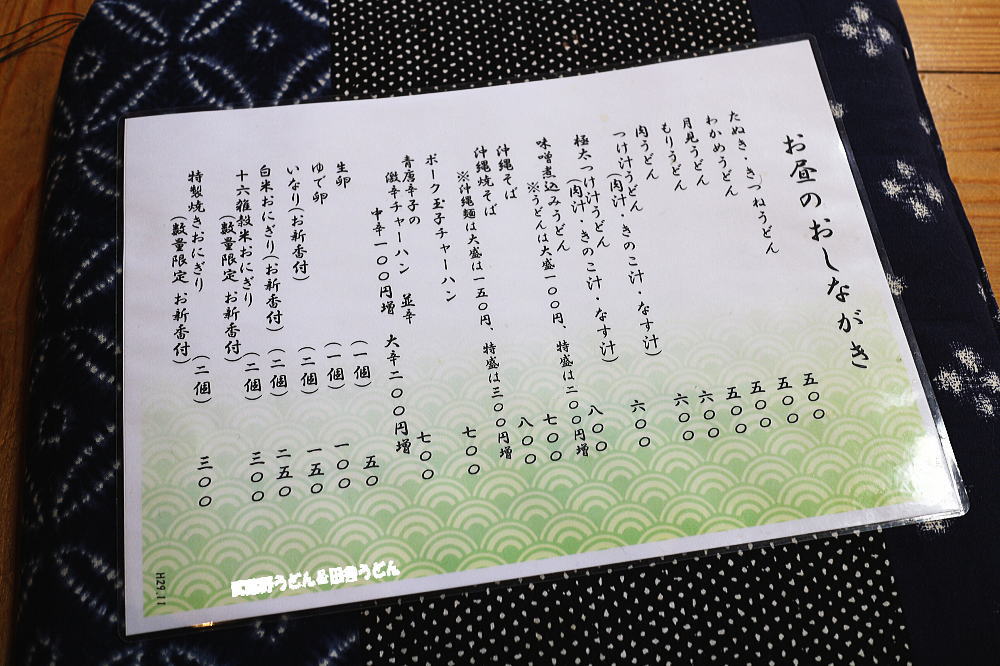 お昼のおしながき
たぬき・きつねうどん 五〇〇
わかめうどん 五〇〇
月見うどん 五〇〇
もりうどん 五〇〇
肉うどん 六〇〇
つけ汁うどん(肉汁・きのこ汁・なす汁) 六〇〇
極太つけ汁うどん(肉汁・きのこ汁・なす汁) 六〇〇
味噌煮込みうどん 八〇〇
※うどんは大盛一〇〇円、特盛は二〇〇円増
沖縄そば 七〇〇
沖縄焼そば 八〇〇
※沖縄麺は大盛は一五〇円、特盛は三〇〇円増
ポーク玉子チャーハン 七〇〇
青唐辛子の
激辛チャーハン 並辛 七〇〇
中辛一〇〇円増 大辛二〇〇円増
生卵 (一個) 五〇
ゆで卵 (一個) 一〇〇
いなり(お新香付) (二個) 一五〇
白米おにぎり(お新香付) (二個) 二五〇
十六雑穀米おにぎり
(数量限定 お新香付) (二個) 三〇〇
特製焼きおにぎり
(数量限定 お新香付) (二個) 三〇〇
H29.11
武蔵野うどん&田舎うどん